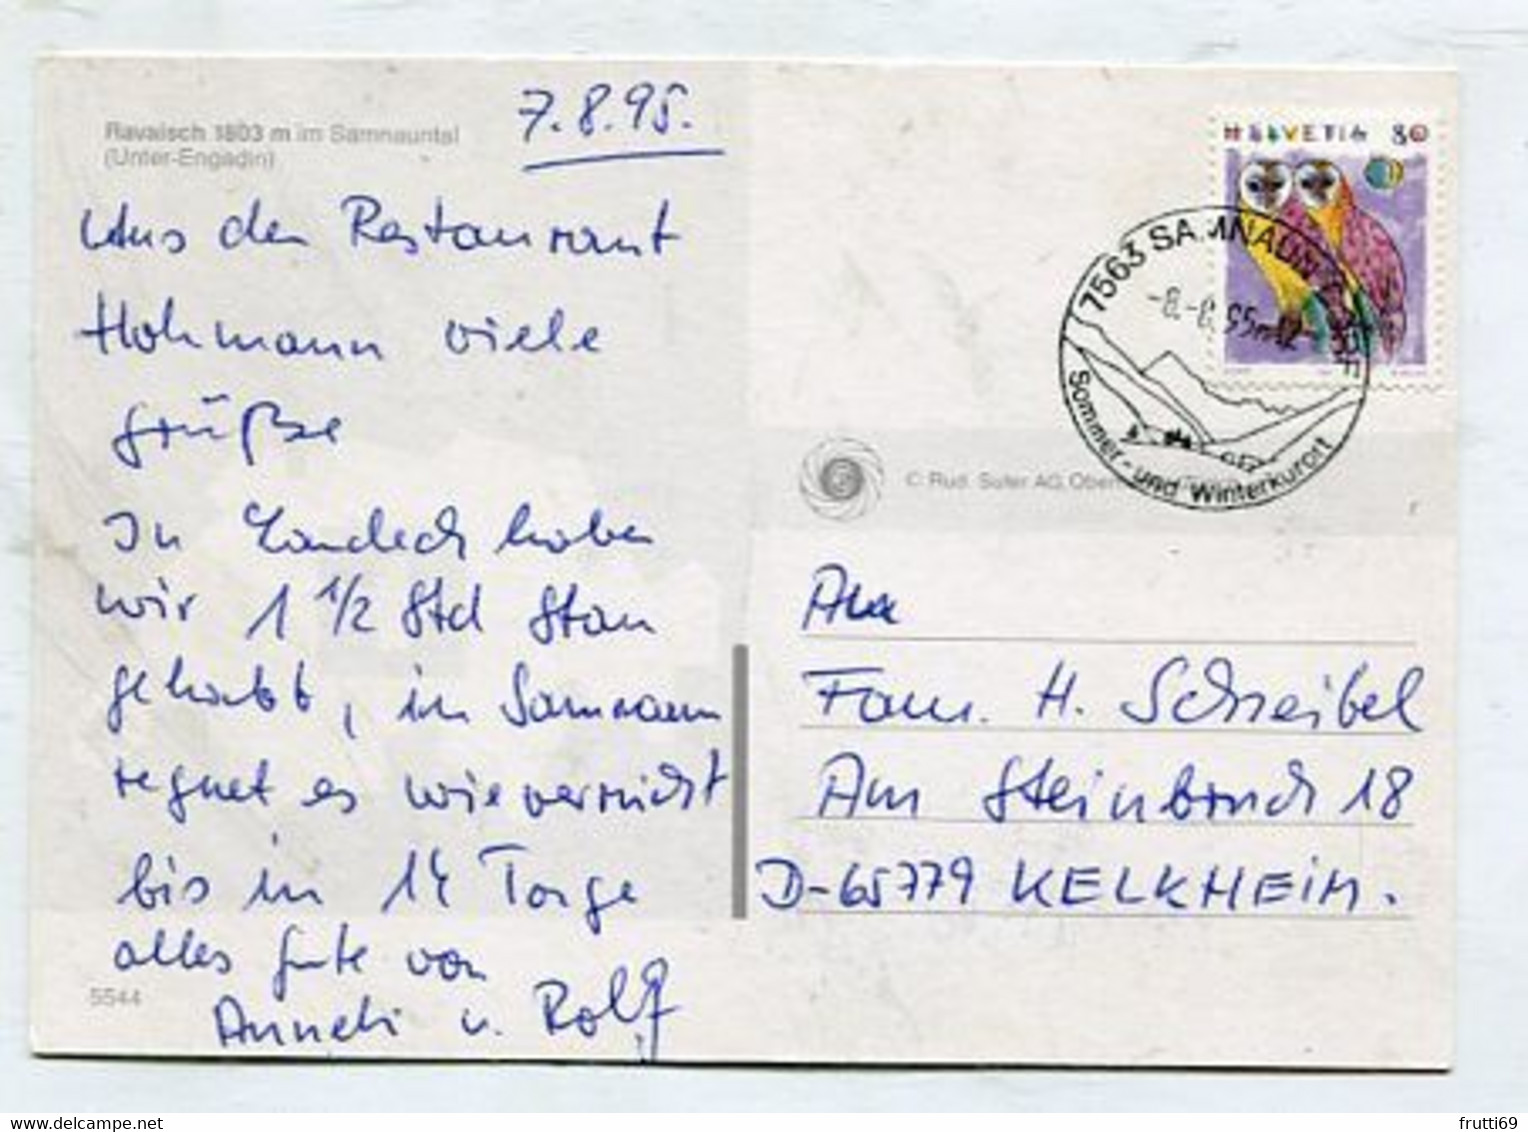 Ravaisch 1803 m im Samnauntal
(Unter-Engadin)
7.8.95.
Aus dem Restaurant
Hohmann viele
Grüße
In Landeck haben
wir 1 1/2 Std Stau
gehabt, in Samnaun
regnet es wie verrückt
bis in 14 Tage
alles Gute von
Anneli u. Rolf
5544
HELVETIA 80
7563 SAMNAUN DORF
-8.-8.95
Sommer- und Winterkurort
© Rud. Suter AG, Ober
An
Fam. H. Scheibel
Am Steinbruch 18
D-65779 KELKHEIM.
frutti69